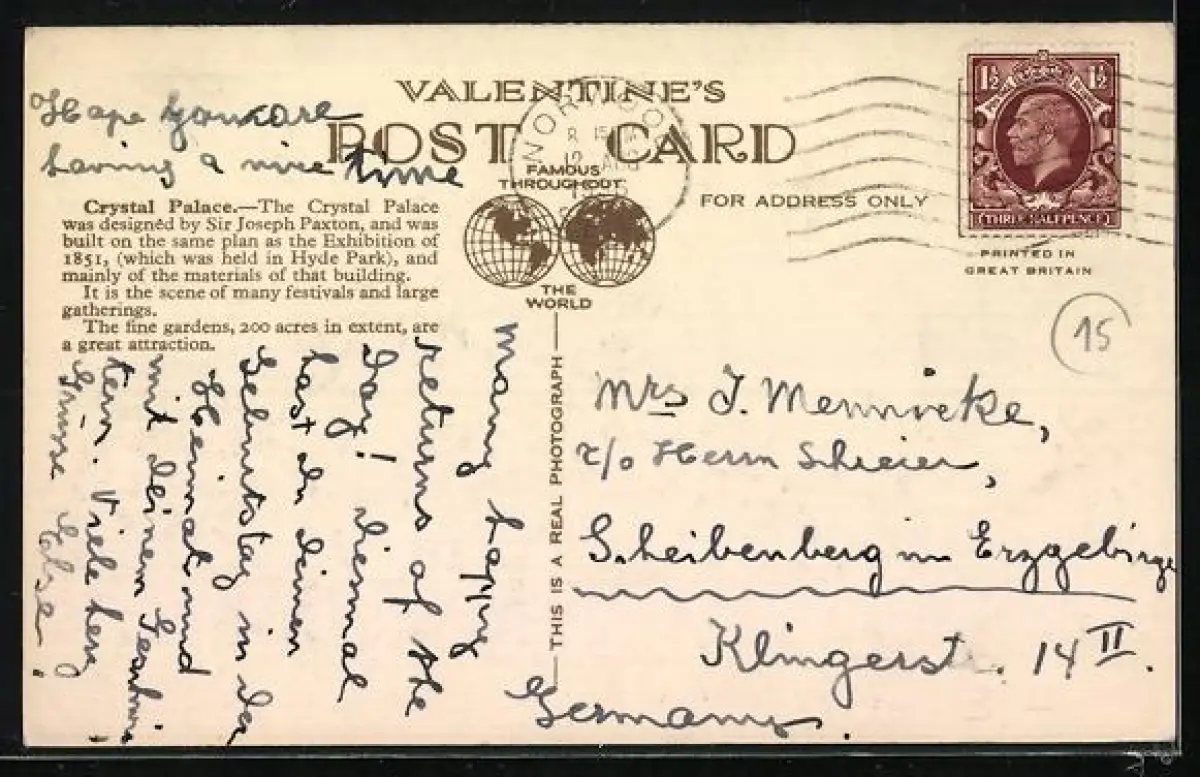 VALENTINE'S
POST CARD
FAMOUS
THROUGHOUT
THE
WORLD
FOR ADDRESS ONLY
1½ 1½
THREE HALFPENCE
PRINTED IN
GREAT BRITAIN
Hope you are
having a nice time
Crystal Palace.—The Crystal Palace
was designed by Sir Joseph Paxton, and was
built on the same plan as the Exhibition of
1851, (which was held in Hyde Park), and
mainly of the materials of that building.
It is the scene of many festivals and large
gatherings.
The fine gardens, 200 acres in extent, are
a great attraction.
Many happy
returns of the
day! Diesmal
hast du deinen
Geburtstag in der
Heimat und
mit deinem
tern. Viele herz
Grüsse
THIS IS A REAL PHOTOGRAPH
15
Mrs J. Mennicke,
c/o Herrn Schreier,
Scheibenberg im Erzgebirge
Klingerstr. 14 II.
Germany.